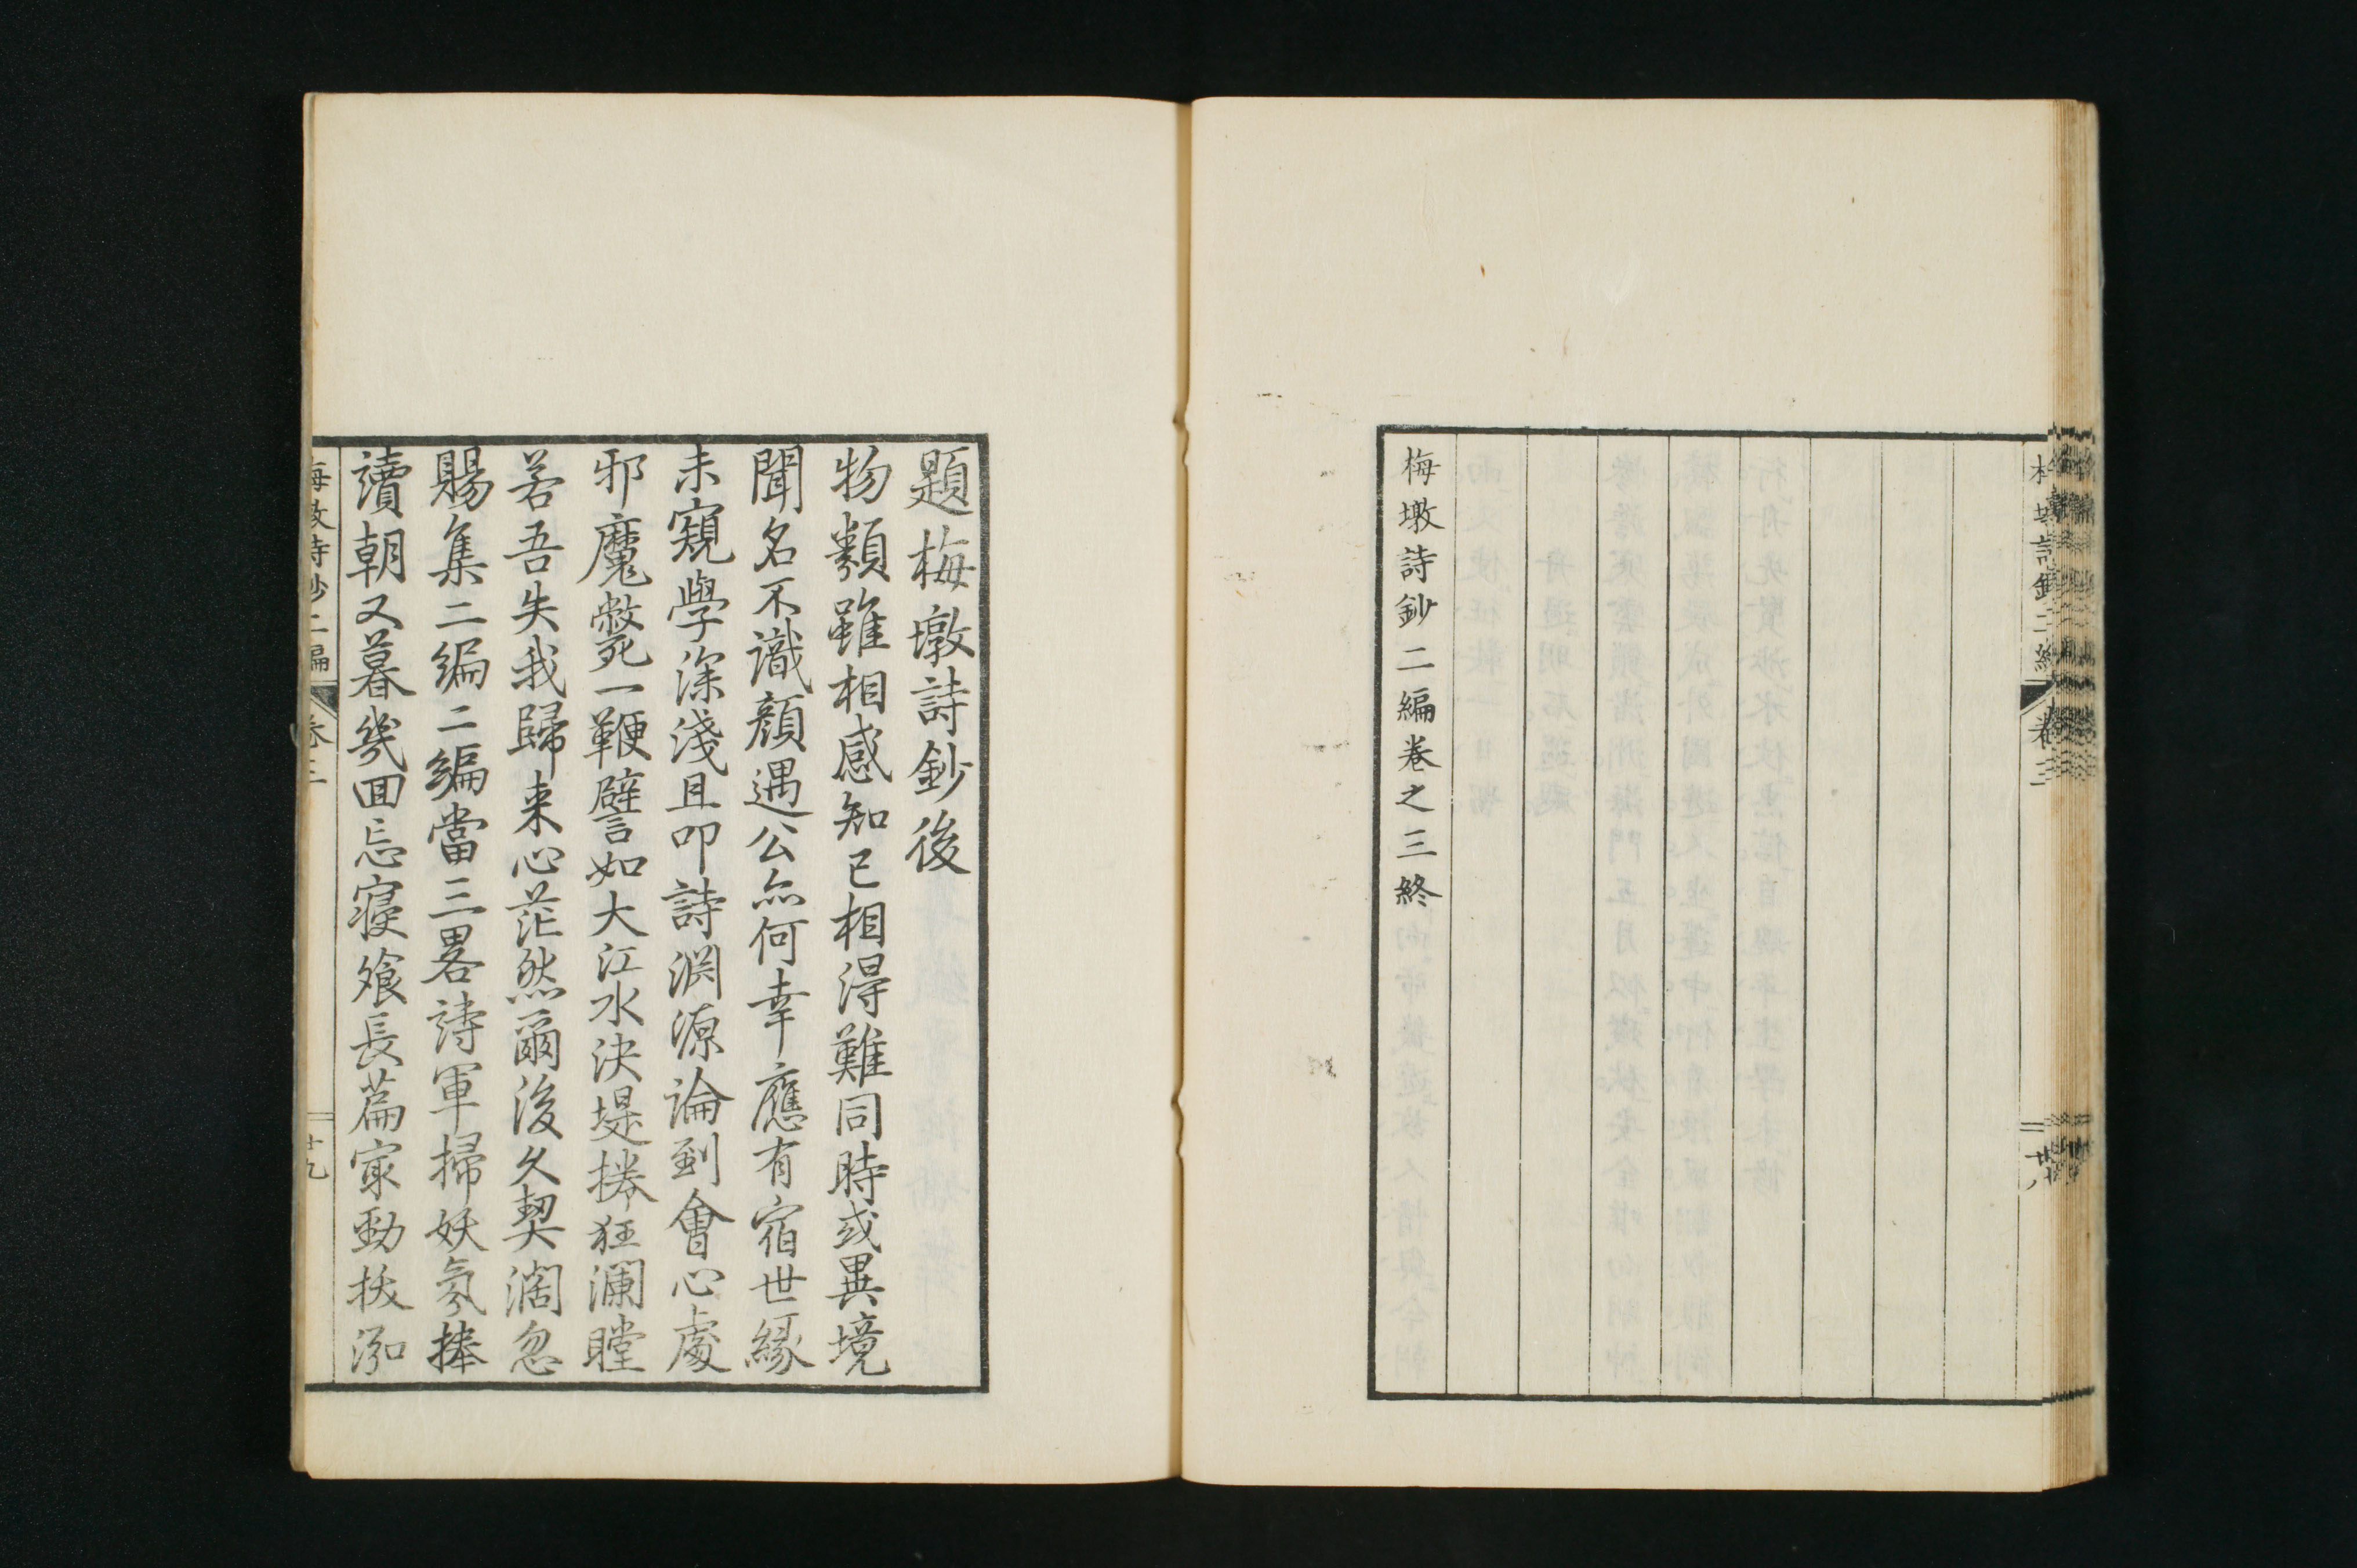 梅墩詩鈔二編卷之三終
題梅墩詩鈔後
物類雖相感知己相得難同時或異境
聞名不識顔遇公亦何幸應有宿世縁
未窺學深淺且叩詩渕源論到會心處
邪魔斃一鞭譬如大江水決堤捲狂瀾瞠
若吾失我歸来心茫然爾後久契濶忽
賜集二編二編當三畧詩軍掃妖氛捧
讀朝又暮幾回忘寝飧長篇家勁
梅墩詩鈔二編 卷三 十九